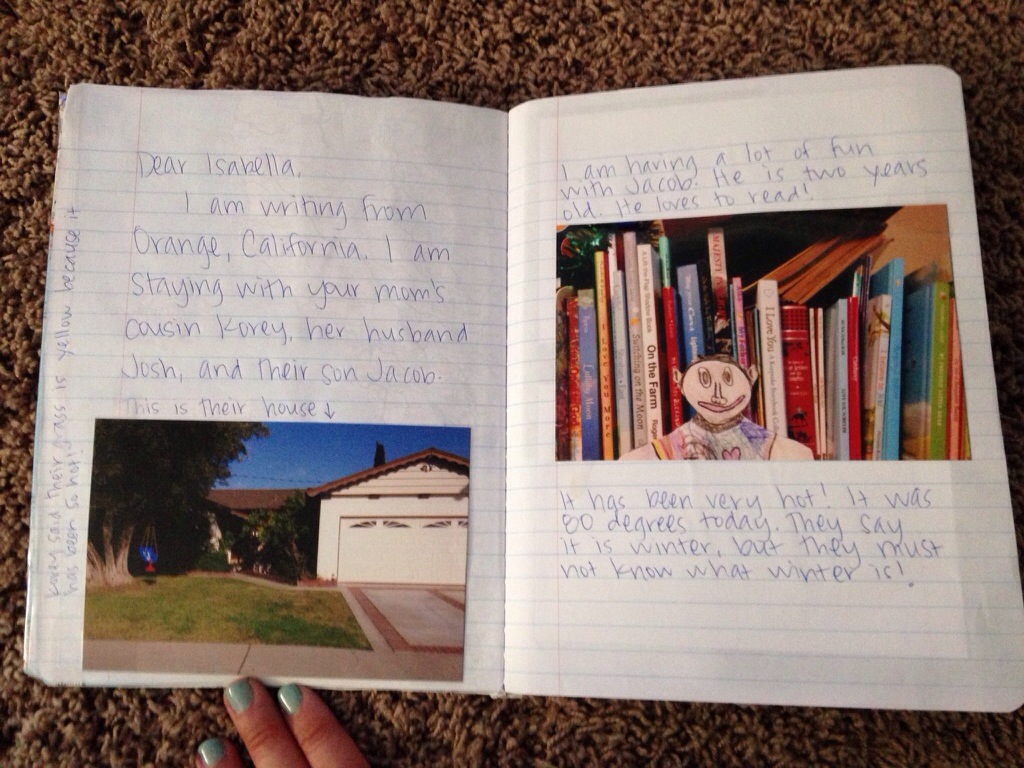 Dear Isabella,
I am writing from
Orange, California. I am
staying with your mom's
cousin Korey, her husband
Josh, and their son Jacob.
This is their house↓
Korey said their grass is yellow because it
has been so hot!
I am having a lot of fun
with Jacob. He is two years
old. He loves to read!
I Love You More
A Lift-the-Flap Shadow Book
Switching on the Moon
On the Farm
MAJESTY
I Love You
It has been very hot! It was
80 degrees today. They say
it is winter, but they must
not know what winter is!